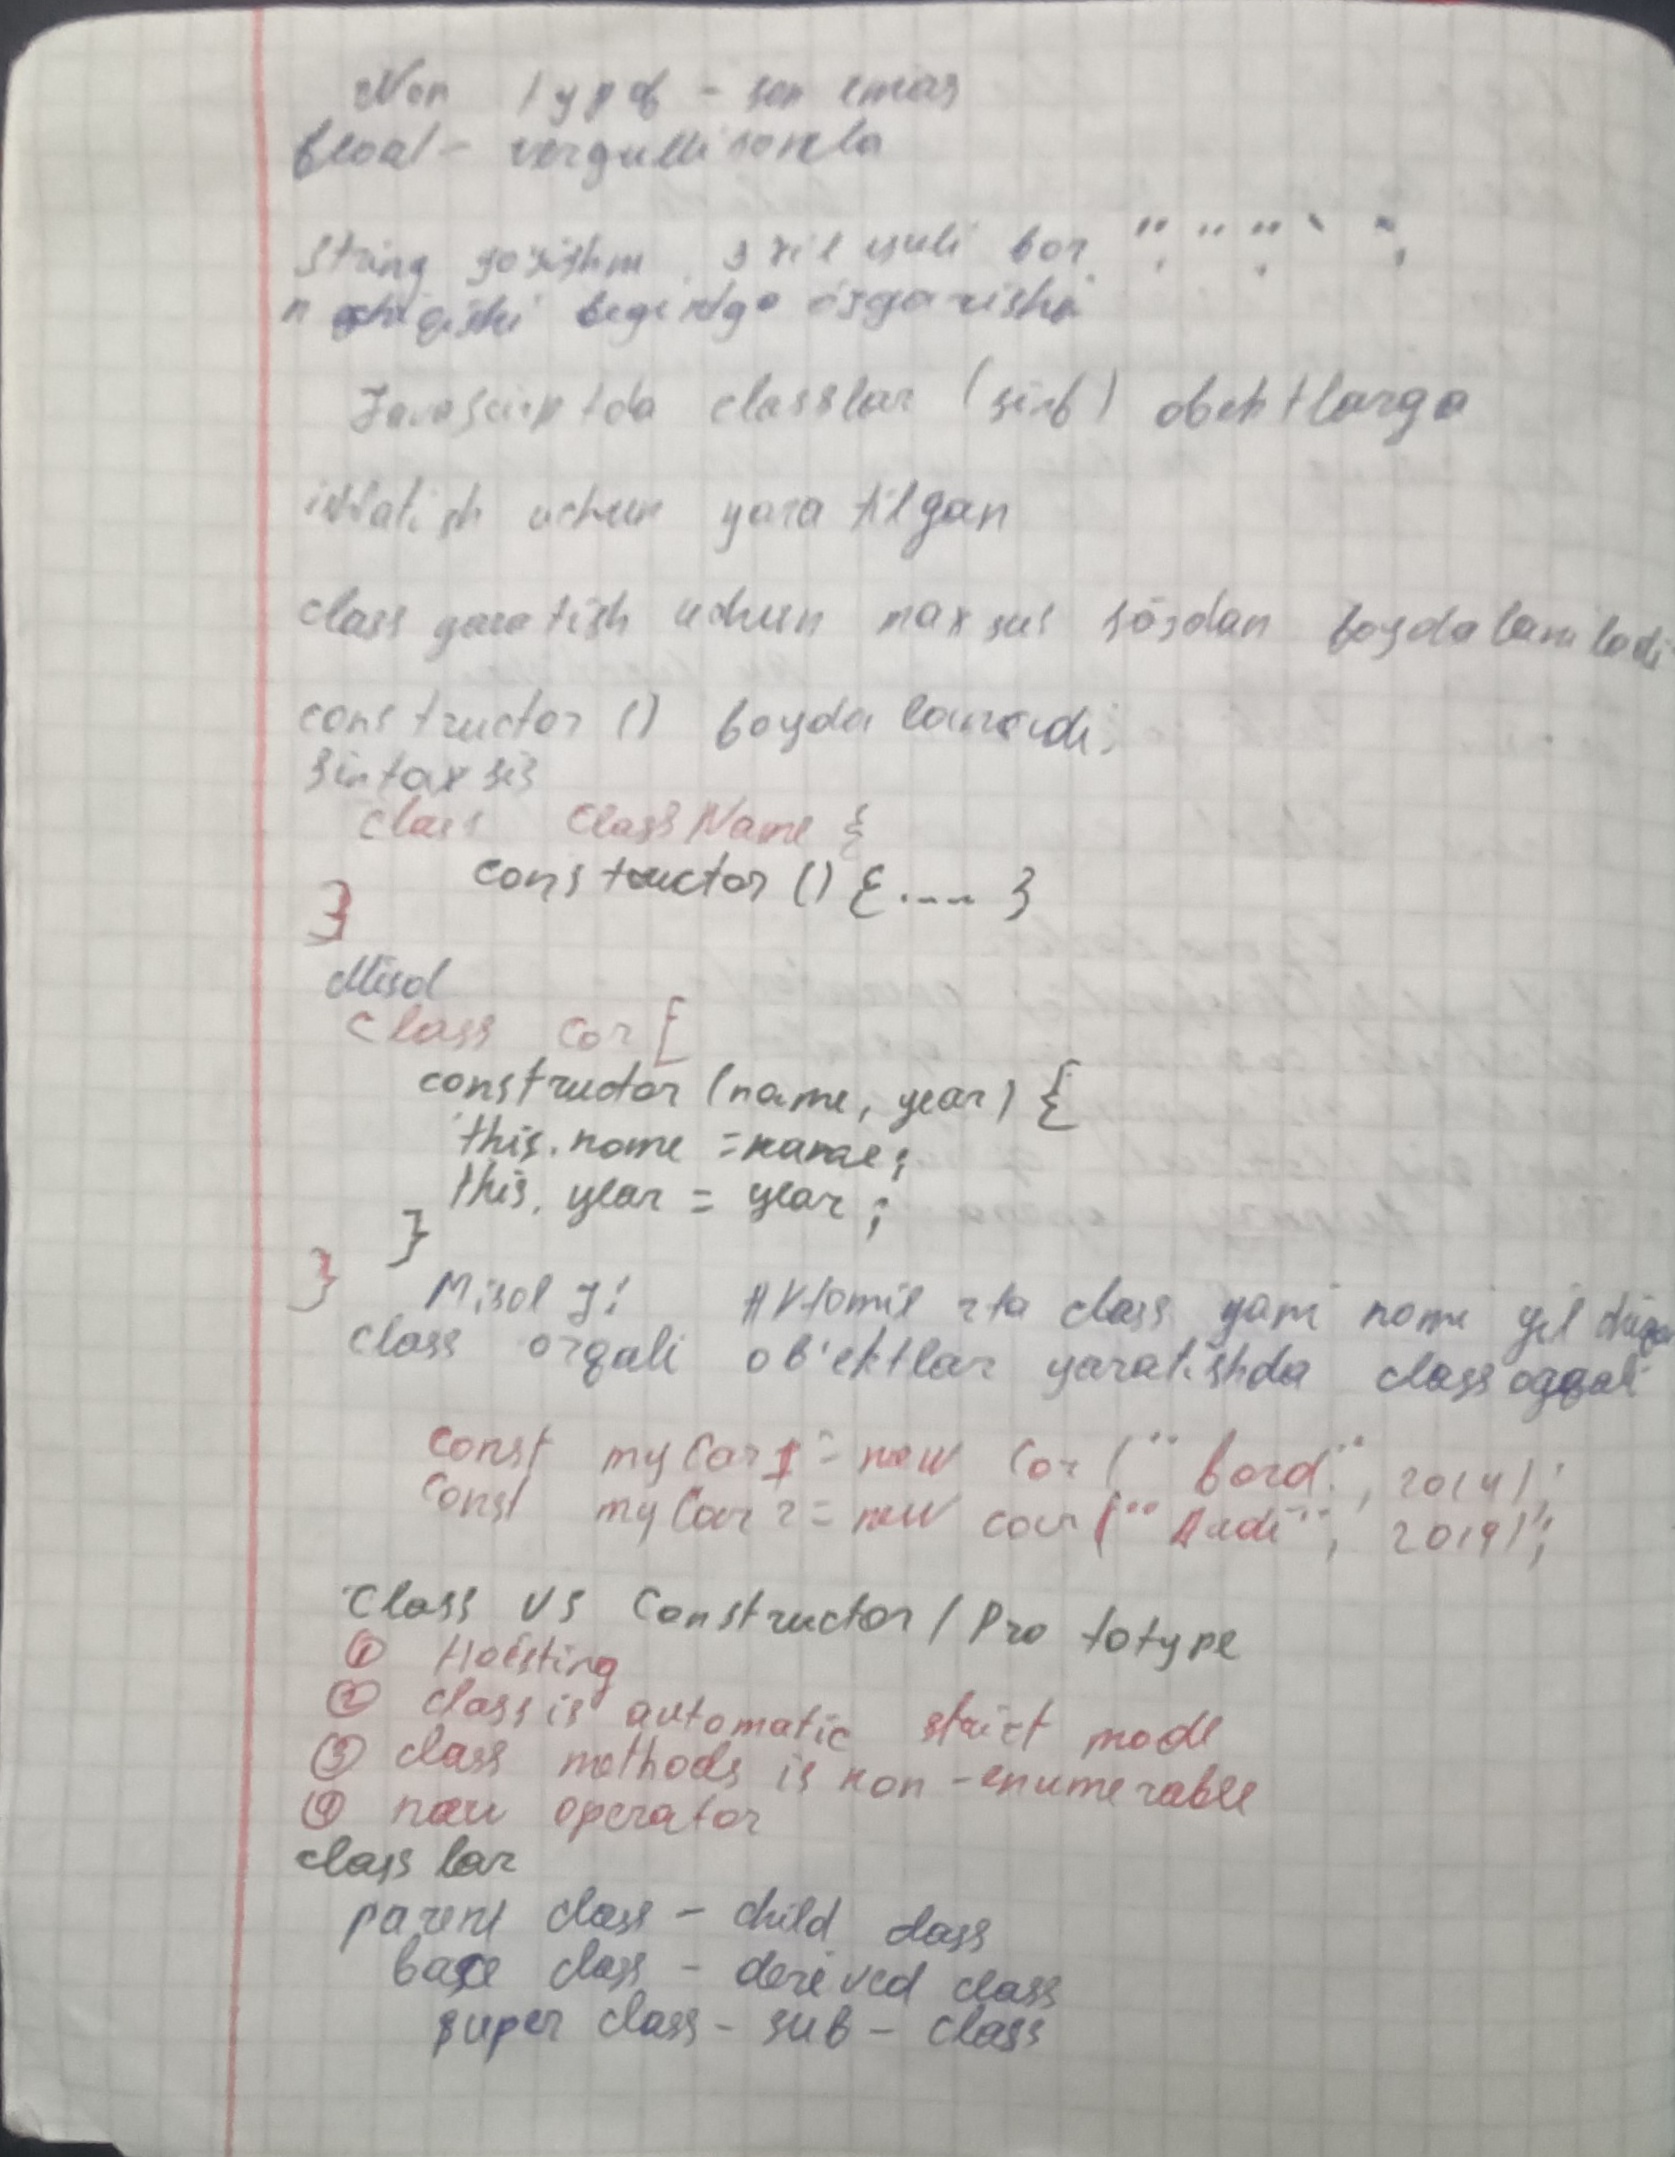 Non typof - son emas
float - vergulli sonla
String yozishni 3 xil usuli bor " " " ` `,
n qatigishi begintga özgarishi
Javascriptda classlar (sinf) obektlarga
ishlatish uchun yaratilgan
class yaratish uchun maxsus sözdan foydalaniladi
constructor () foydalanradi;
Sintaxsis
class ClassName {
constructor () { .... }
}
Misol
class Car [
constructor (name, year) {
this.name = name;
this.year = year;
}
}
Misol J: 2ta class yani nomi yil
class orqali ob'ektlar yaratishda class orqali
const myCar1 = new Car ("ford", 2014);
const myCar2 = new car ("Audi", 2019);
Class VS Constructor / Prototype
① Hoisting
② class is automatic strict mode
③ class methods is non-enumerable
④ new operator
class lar
parent class - child class
base class - derived class
super class - sub - class